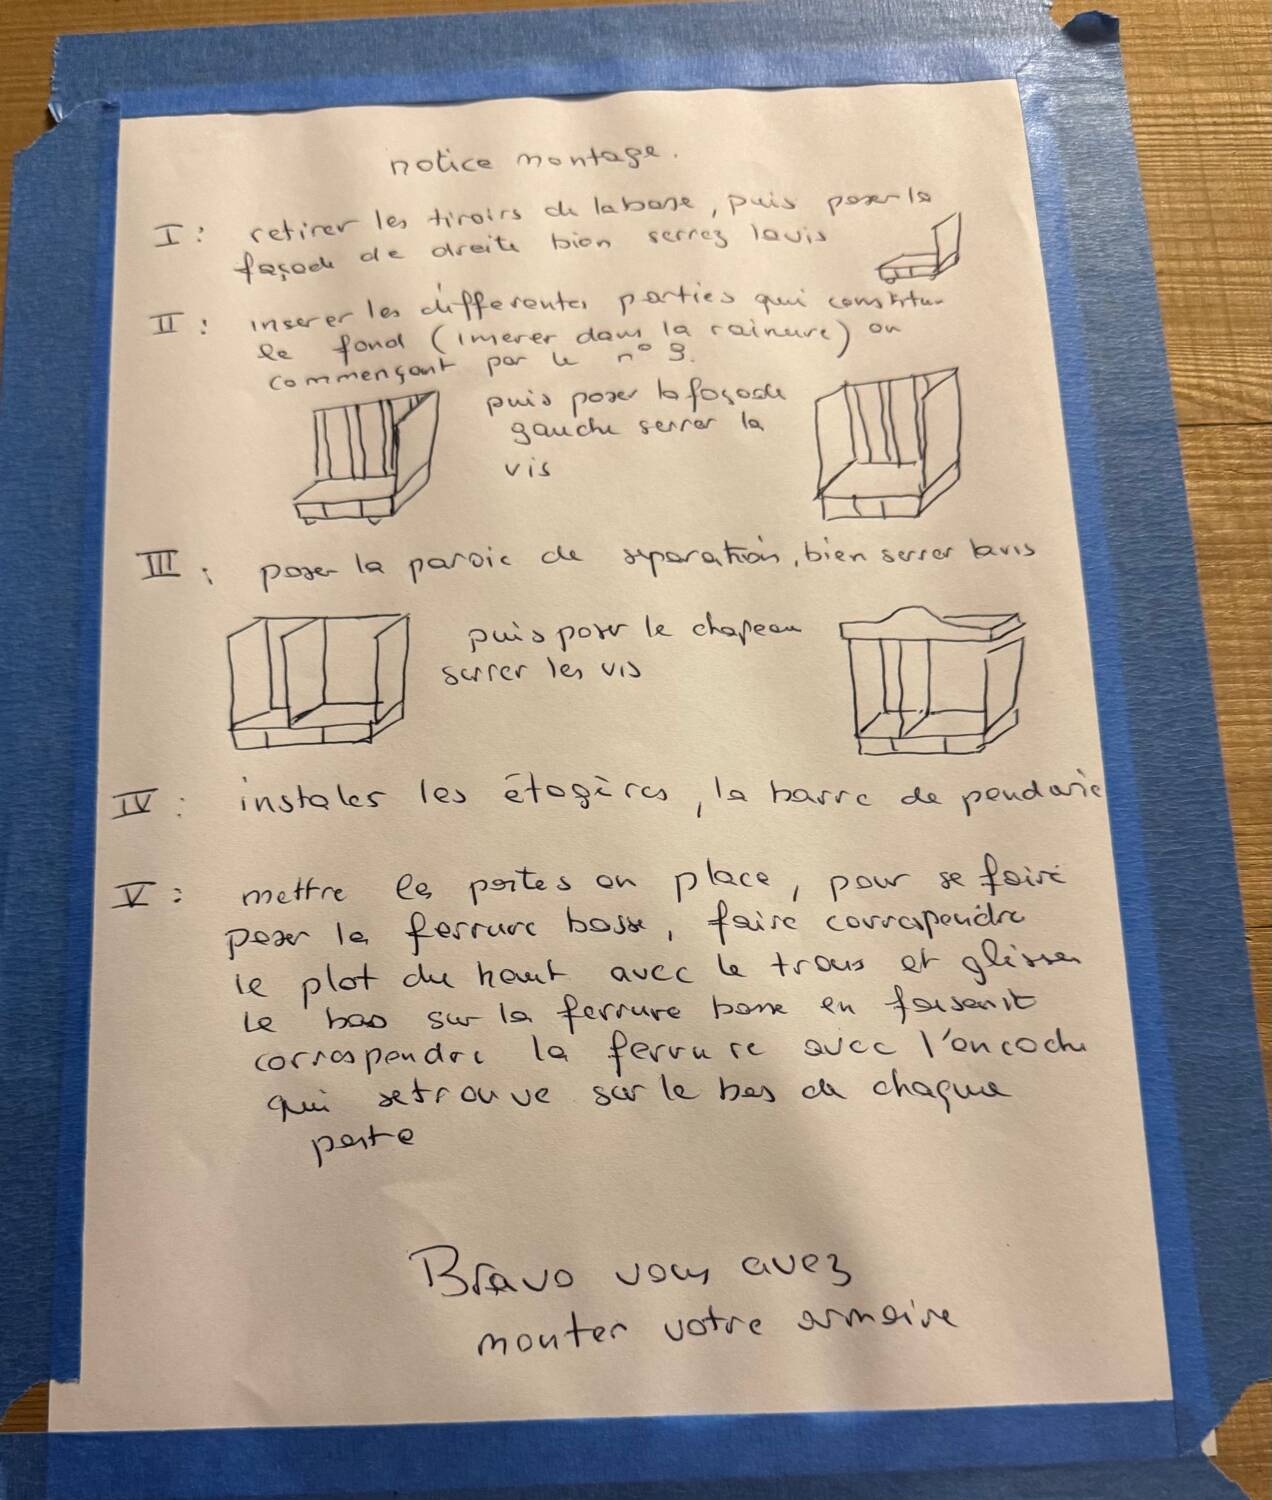 notice montage.
I : retirer les tiroirs de la base, puis poser la
façade de droite bien serrez la vis
II : inserer les differentes parties qui constitue
le fond (inserer dans la rainure) en
commençant par le n°
puis poser la façade
gauche serrer la
vis
III : poser la paroie de separation, bien serrer la vis
puis poser le chapeau
serrer les vis
IV : instales les étagères, la barre de penderie
V : mettre les portes en place, pour se faire
poser la ferrure basse, faire correspendre
le plot du haut avec le trous et glisser
le bas sur la ferrure basse en faisant
correspendre la ferrure avec l'encoche
qui se trouve sur le bas de chaque
porte
Bravo vous avez
monter votre armoire